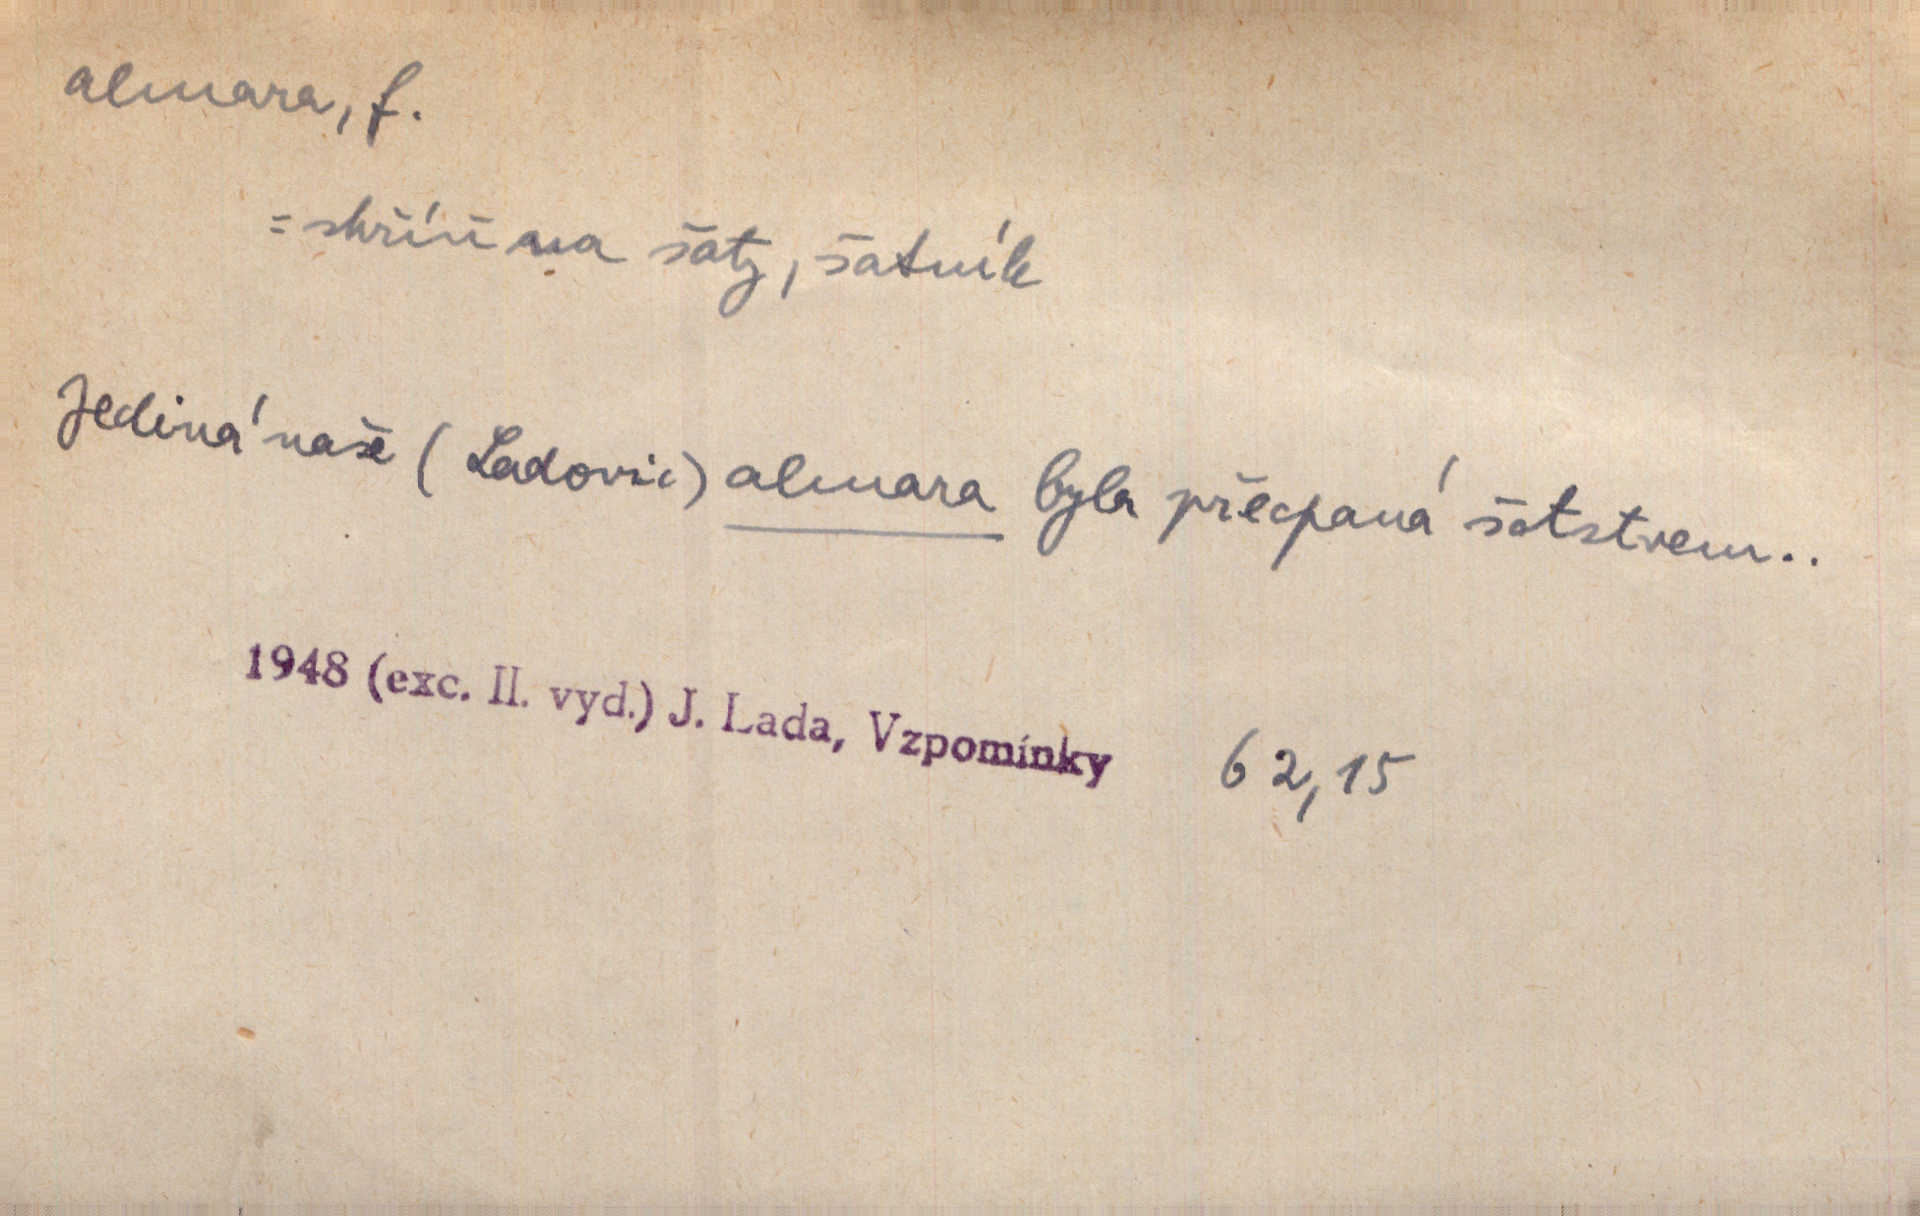 almara, f.
= skříň na šaty, šatník
Jediná naše (Ladovic) almara byla přecpaná šatstvem..
1948 (exc. II. vyd.) J. Lada, Vzpomínky 62,15